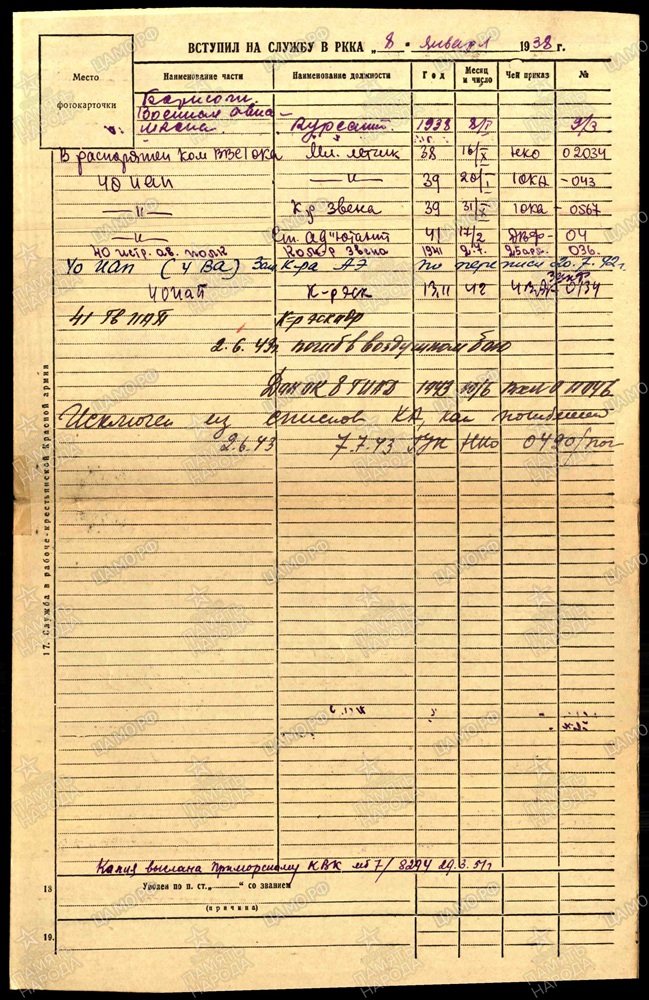 ВСТУПИЛ НА СЛУЖБУ В РККА „8" января 1938 г.
Место фотокарточки
Наименование части Наименование должности Год Месяц и число Чей приказ №
Военная авиа-
школа Курсант 1938 8/I 9/3
В распоряжен ком ВВС 1 ока Мл. летчик 38 16/X НКО 02034
40 иап —„— 39 20/I 1 ОКА -043
—„— К-р звена 39 31/X 1 ока -0567
—„— Ст. ад"ютант 41 17/2 ДВФ- 04
40 истр. ав. полк 1941 2.7. 036.
40 ИАП (4 ВА) Зам к-ра АЭ по переписи 20.7.42г.
40 иап К-р эск 13.11 42 4 ВА- 0134
41 Гв ИАП К-р эскадр
2.6.43г. погиб в воздушном бою
1943
Исключен из списков КА, как погибший
2.6.43 7.7.43 ГУК НКО 0490/пог
17. Служба в рабоче-крестьянской Красной армии
Копия выслана Приморскому КВК 7/8294 29.3.51г
18 Уволен по п. ст. „ “ со званием
(причина)
19.
ЦАМО.РФ
ПАМЯТЬ НАРОДА